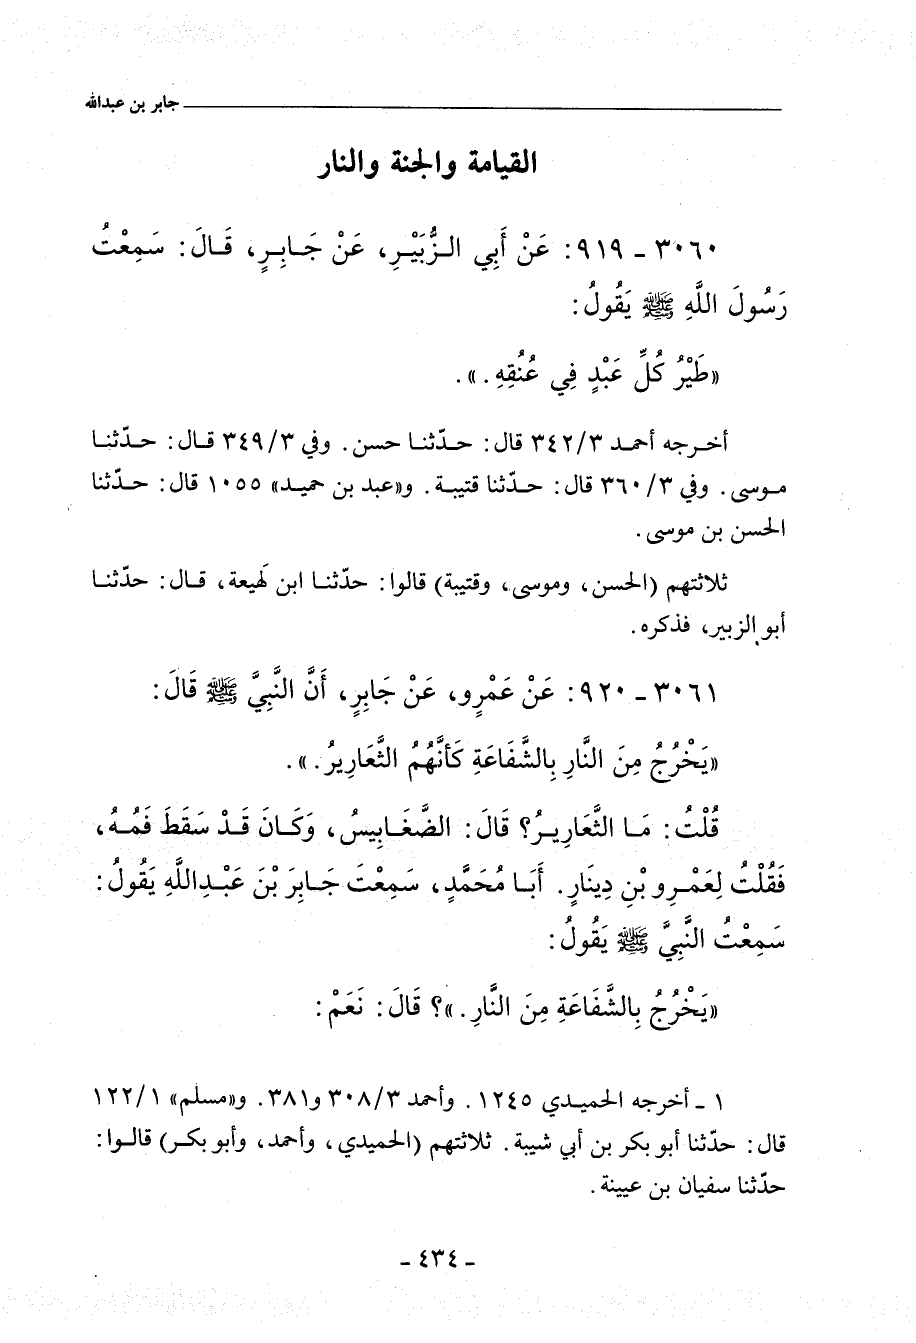 جابر بن عبدالله
القيامة والجنة والنار
٣٠٦٠ - ٩١٩: عَنْ أَبِي الزُّبَيْرِ، عَنْ جَابِرٍ، قَالَ: سَمِعْتُ
رَسُولَ اللَّهِ ﷺ يَقُولُ:
«طَيْرُ كُلِّ عَبْدٍ فِي عُنُقِهِ.».
أخرجه أحمد ٣٤٢/٣ قال: حدّثنا حسن. وفي ٣٤٩/٣ قال: حدّثنا
موسى. وفي ٣٦٠/٣ قال: حدّثنا قتيبة. و«عبد بن حميد» ١٠٥٥ قال: حدّثنا
الحسن بن موسى.
ثلاثتهم (الحسن، وموسى، وقتيبة) قالوا: حدّثنا ابن لَهيعة، قال: حدّثنا
أبو الزبير، فذكره.
٣٠٦١ - ٩٢٠: عَنْ عَمْرٍو، عَنْ جَابِرٍ، أَنَّ النَّبِيَّ ﷺ قَالَ:
«يَخْرُجُ مِنَ النَّارِ بِالشَّفَاعَةِ كَأَنَّهُمُ الثَّعَارِيرُ.».
قُلْتُ: مَا الثَّعَارِيرُ؟ قَالَ: الضَّغَابِيسُ، وَكَانَ قَدْ سَقَطَ فَمُهُ،
فَقُلْتُ لِعَمْرِو بْنِ دِينَارٍ. أَبَا مُحَمَّدٍ، سَمِعْتَ جَابِرَ بْنَ عَبْدِاللَّهِ يَقُولُ:
سَمِعْتُ النَّبِيَّ ﷺ يَقُولُ:
«يَخْرُجُ بِالشَّفَاعَةِ مِنَ النَّارِ.»؟ قَالَ: نَعَمْ:
١ - أخرجه الحميدي ١٢٤٥. وأحمد ٣٠٨/٣ و٣٨١. و«مسلم» ١٢٢/١
قال: حدّثنا أبو بكر بن أبي شيبة. ثلاثتهم (الحميدي، وأحمد، وأبو بكر) قالوا:
حدّثنا سفيان بن عيينة.
- ٤٣٤ -